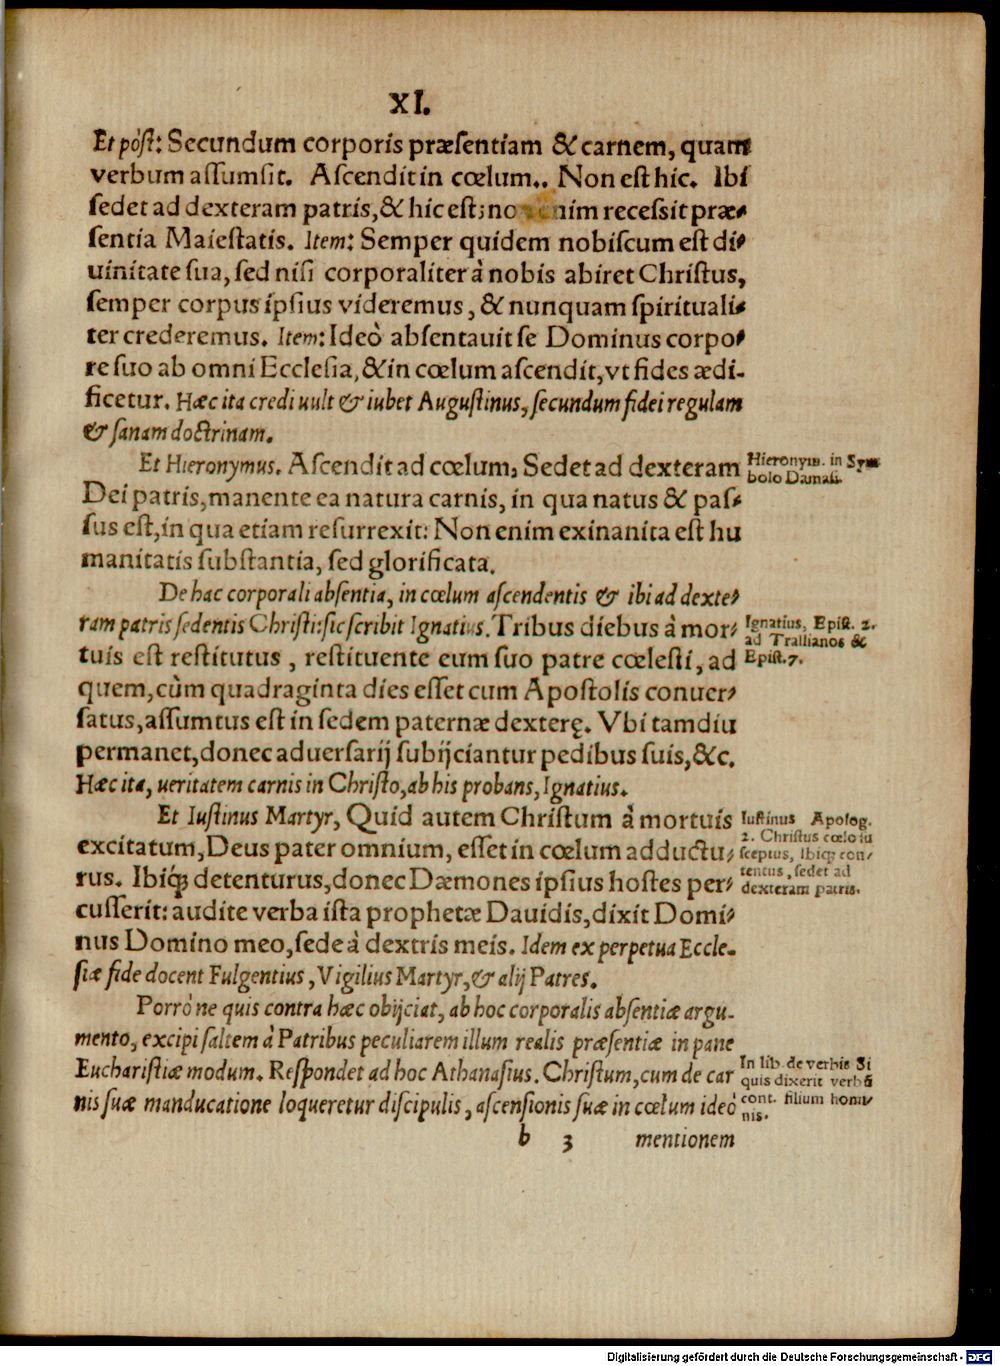 XI.
Et pòſt: Secundum corporis præſentiam & carnem, quam
verbum aſſumſit. Aſcendit in cœlum.. Non eſt hic. Ibi
ſedet ad dexteram patris, & hic eſt; no nim receſsit præ-
ſentia Maieſtatis. Item: Semper quidem nobiſcum eſt di-
uinitate ſua, ſed niſi corporaliter à nobis abiret Chriſtus,
ſemper corpus ipſius videremus, & nunquam ſpirituali-
ter crederemus. Item: Ideò abſentauit ſe Dominus corpo-
re ſuo ab omni Eccleſia, & in cœlum aſcendit, vt fides ædi-
ficetur. Hæc ita credi uult & iubet Auguſtinus, ſecundum fidei regulam
& ſanam doctrinam.
Et Hieronymus. Aſcendit ad cœlum, Sedet ad dexteram
Hieronym. in Sym
bolo Damaſi.
Dei patris, manente ea natura carnis, in qua natus & paſ-
ſus eſt, in qua etiam reſurrexit: Non enim exinanita eſt hu
manitatis ſubſtantia, ſed glorificata.
De hac corporali abſentia, in cœlum aſcendentis & ibi ad dexte-
ram patris ſedentis Chriſti: ſic ſcribit Ignatius. Tribus diebus à mor-
Ignatius, Epiſt. 2.
ad Trallianos &
Epiſt. 7.
tuis eſt reſtitutus, reſtituente eum ſuo patre cœleſti, ad
quem, cùm quadraginta dies eſſet cum Apoſtolis conuer-
ſatus, aſſumtus eſt in ſedem paternæ dexterę. Vbi tamdiu
permanet, donec aduerſarij ſubijciantur pedibus ſuis, &c.
Hæc ita, ueritatem carnis in Chriſto, ab his probans, Ignatius.
Et Iuſtinus Martyr, Quid autem Chriſtum à mortuis
Iuſtinus Apolog.
2. Chriſtus cœlo ſu
ſceptus, Ibiq; con-
tentus, ſedet ad
dexteram patris.
excitatum, Deus pater omnium, eſſet in cœlum adductu-
rus. Ibiq; detenturus, donec Dæmones ipſius hoſtes per-
cuſſerit: audite verba iſta prophetæ Dauidis, dixit Domi-
nus Domino meo, ſede à dextris meis. Idem ex perpetua Eccle-
ſiæ fide docent Fulgentius, Vigilius Martyr, & alij Patres.
Porrò ne quis contra hæc obijciat, ab hoc corporalis abſentiæ argu-
mento, excipi ſaltem à Patribus peculiarem illum realis præſentiæ in pane
Euchariſtiæ modum. Reſpondet ad hoc Athanaſius. Chriſtum, cum de car
In lib. de verbis Si
quis dixerit verbũ
cont. filium homi-
nis.
nis ſuæ manducatione loqueretur diſcipulis, aſcenſionis ſuæ in cœlum ideò
b 3 mentionem
Digitalisierung gefördert durch die Deutsche Forschungsgemeinschaft - DFG